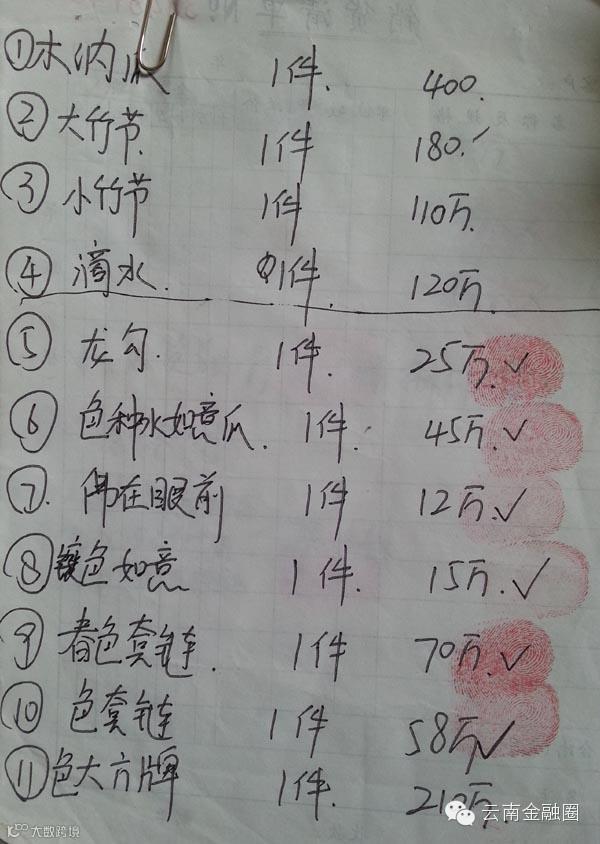 销货清单 No.
① 木纳 1件. 400.
② 大竹节. 1件 180.✓
③ 小竹节 1件 110万.
④ 滴水. 1件. 120万.
⑤ 龙勾. 1件. 25万.✓
⑥ 色种水如意瓜. 1件. 45万.✓
⑦. 佛在眼前 1件 12万.✓
⑧ 镶色如意 1件. 15万.✓
⑨ 春色套链. 1件 70万.✓
⑩ 色套链 1件 58万✓
⑪ 色大方牌 1件. 210万.
云南金融圈
10100 大数跨境